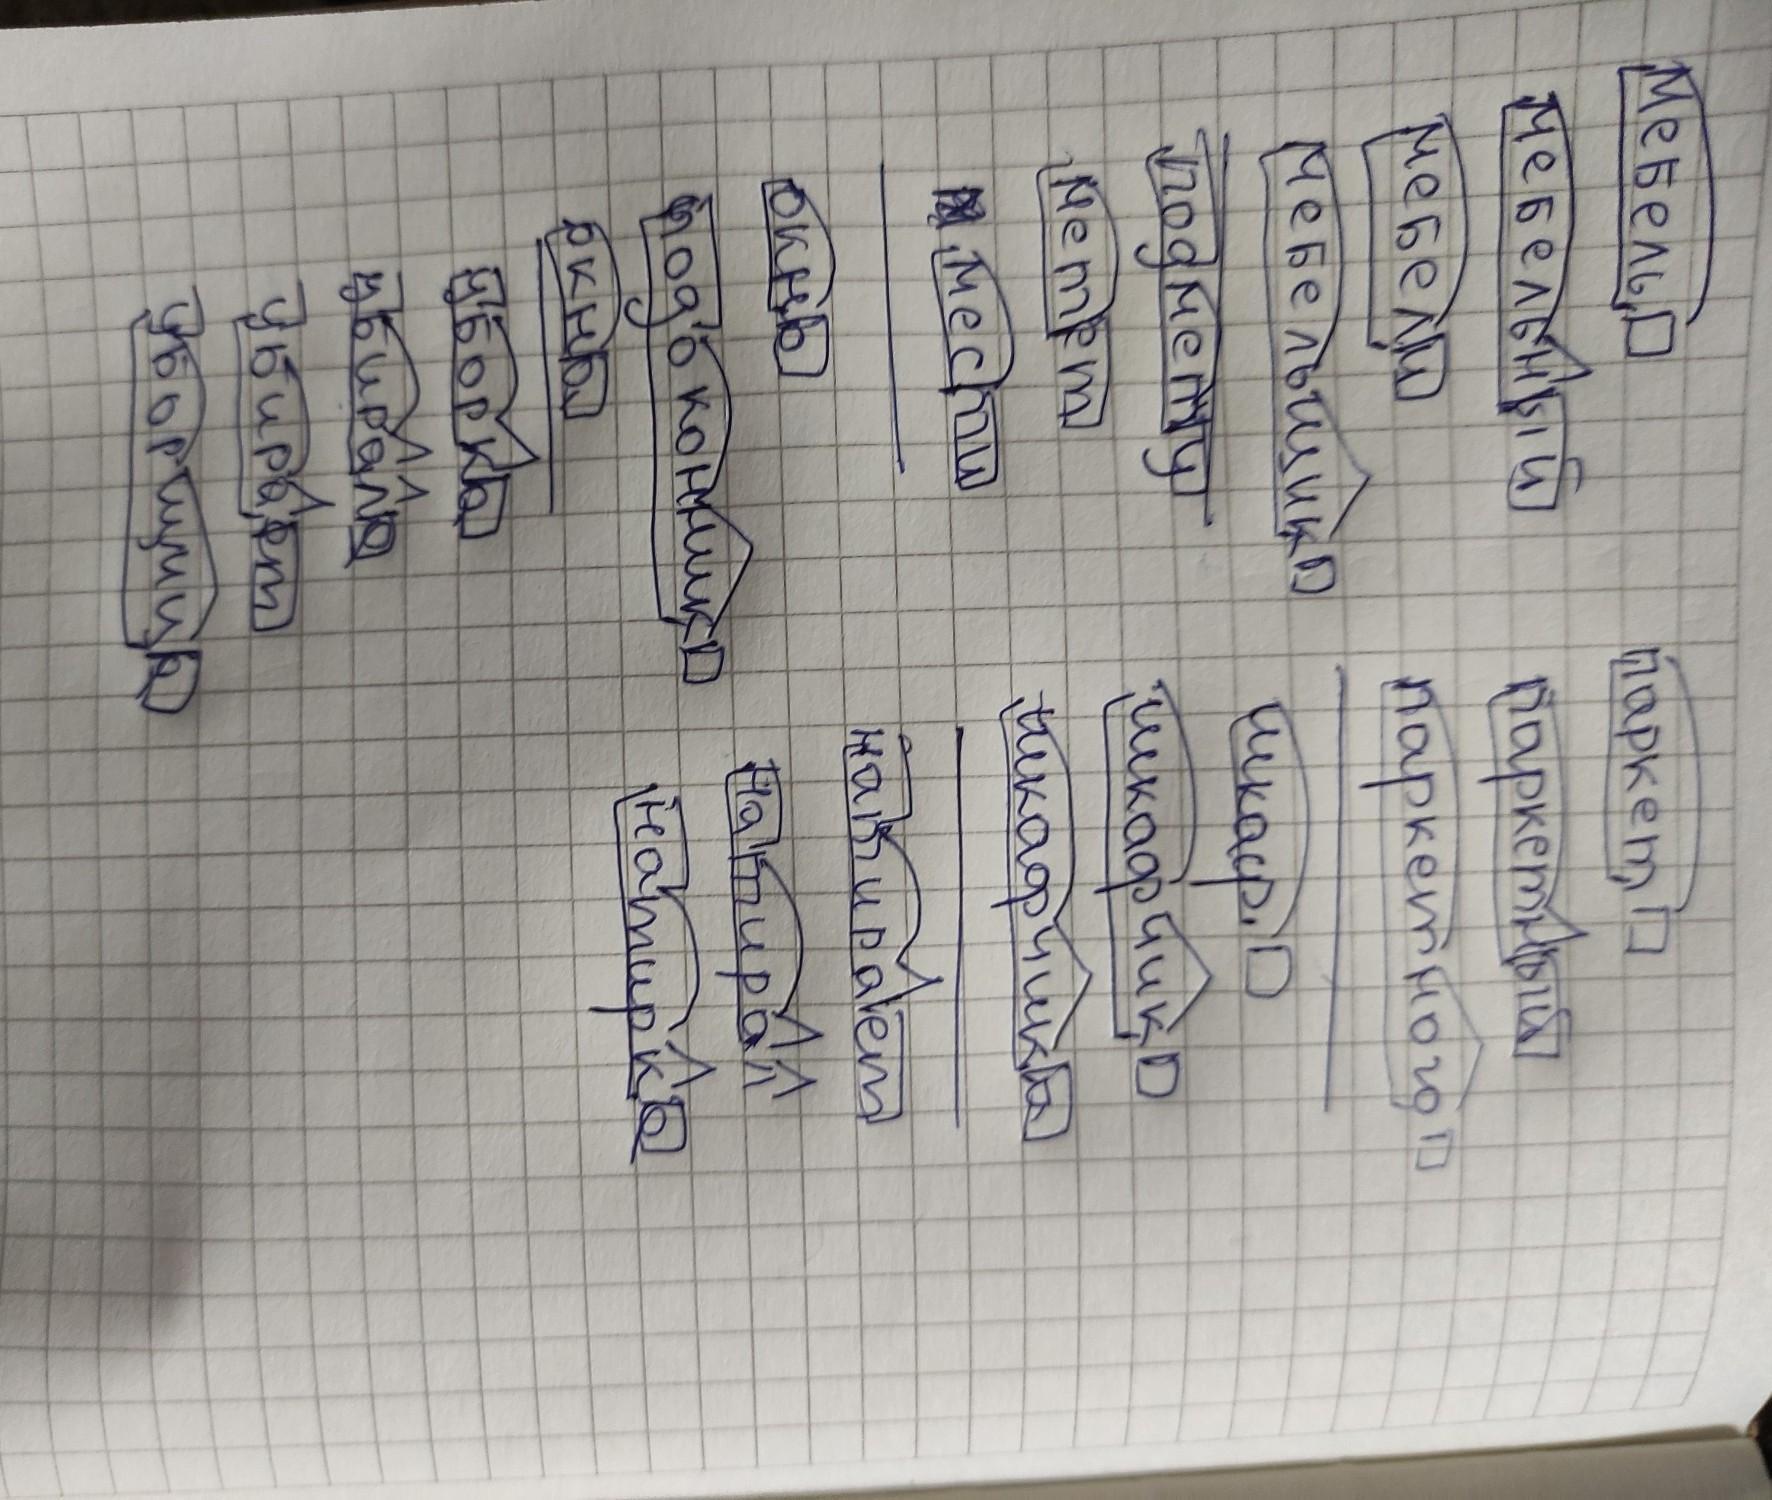 Мебель
мебельный
мебели
мебельщик
подмету
метет
мести
окно
подоконник
окна
уборка
убирала
убирает
уборщица
паркет
паркетный
паркетного
шкаф
шкафчик
шкафчика
натирает
натирал
натирка